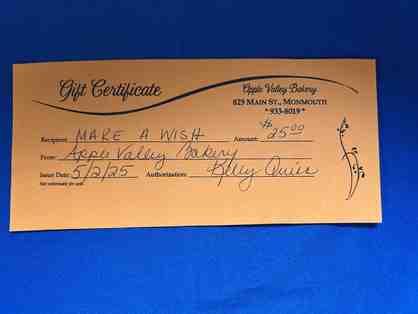 Gift Certificate
Apple Valley Bakery
829 Main St., Monmouth
* 933-8019 *
Recipient: MAKE A WISH Amount: $25.00
From: Apple Valley Bakery
Issue Date: 5/2/25 Authorization: Kelly
Not redeemable for cash